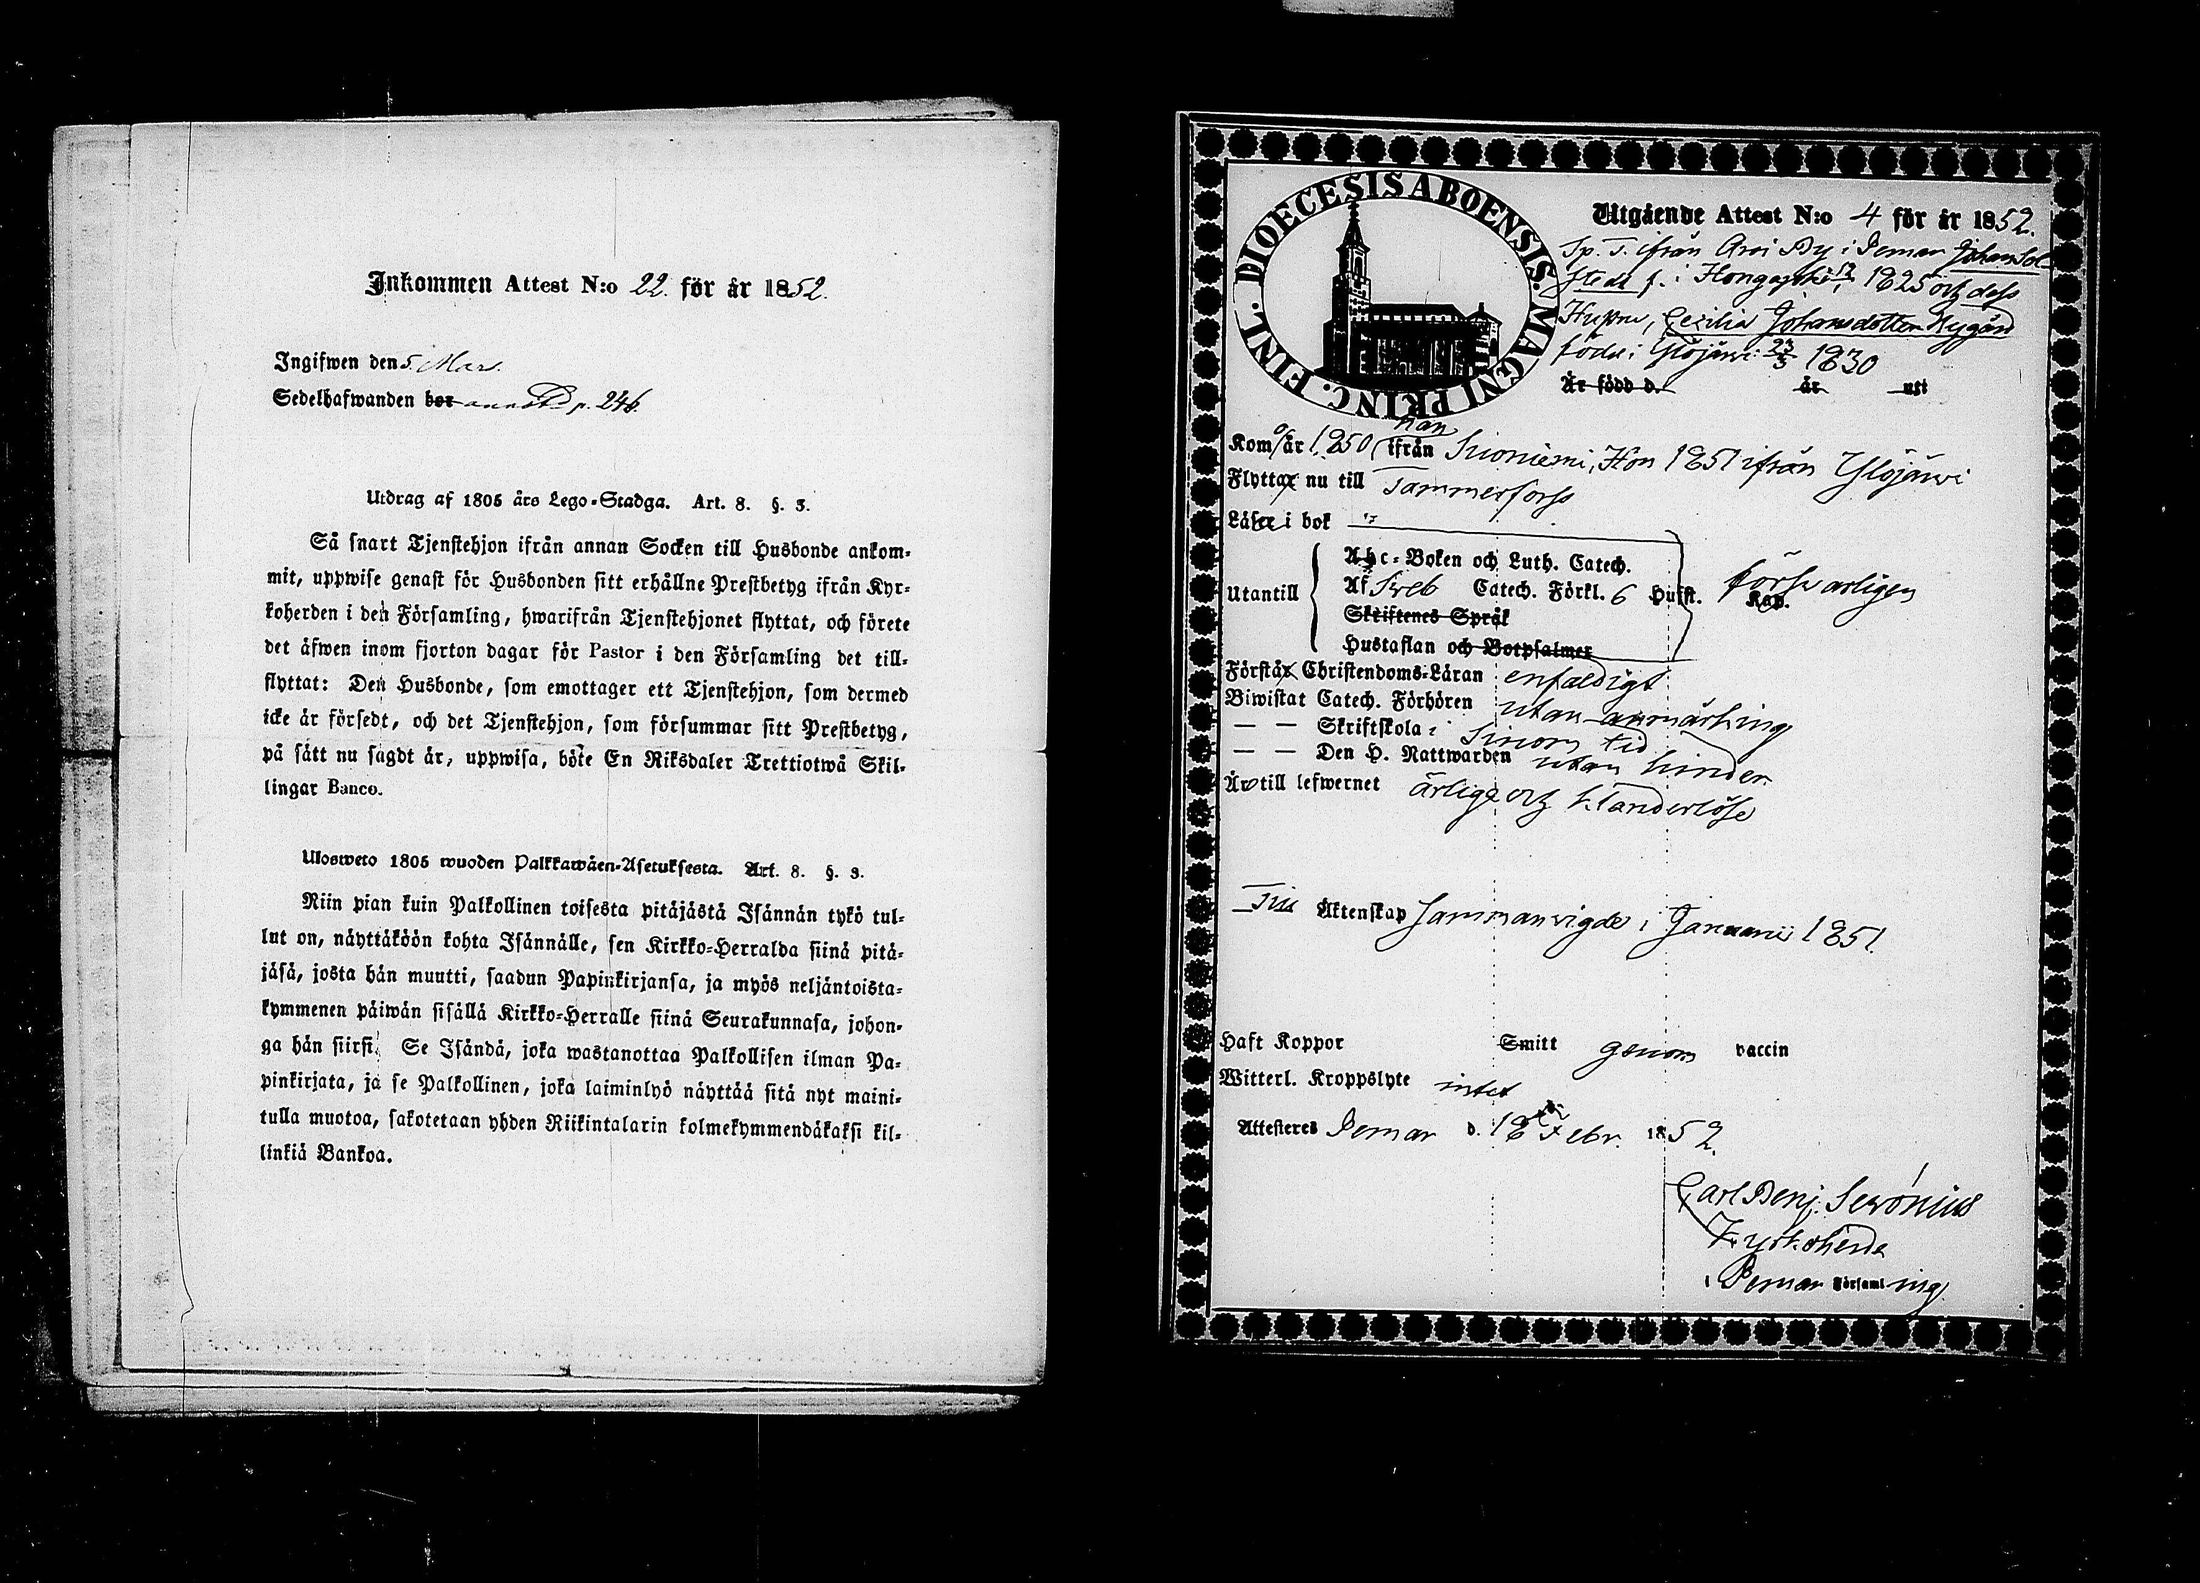 Inkommen Attest N:o 22. för år 1852.
Ingifwen den 5. Mars.
Sedelhafwanden bor p. 246.
Utdrag af 1805 års Lego-Stadga. Art. 8. §. 3.
Så snart Tjenstehjon ifrån annan Socken till Husbonde ankom-
mit, uppwise genast för Husbonden sitt erhållne Prestbetyg ifrån Kyr-
koherden i den Församling, hwarifrån Tjenstehjonet flyttat, och förete
det äfwen inom fjorton dagar för Pastor i den Församling det till-
flyttat: Den Husbonde, som emottager ett Tjenstehjon, som dermed
icke är försedt, och det Tjenstehjon, som försummar sitt Prestbetyg,
på sätt nu sagdt är, uppwisa, böte En Riksdaler Trettiotwå Skil-
lingar Banco.
Ulosweto 1805 wuoden Palkkawäen-Asetuksesta. Art. 8. §. 3.
Niin pian kuin Palkollinen toisesta pitäjästä Isännän tykö tul-
lut on, näyttäköön kohta Isännälle, sen Kirkko-Herralda siinä pitä-
jäsä, josta hän muutti, saadun Papinkirjansa, ja myös neljäntoista-
kymmenen päiwän sisällä Kirkko-Herralle siinä Seurakunnasa, johon-
ga hän siirsi. Se Isändä, joka wastanottaa Palkollisen ilman Pa-
pinkirjata, ja se Palkollinen, joka laiminlyö näyttää sitä nyt maini-
tulla muotoa, sakotetaan yhden Riikintalarin kolmekymmendäkaksi kil-
linkiä Bankoa.
DIOECESIS ABOENSIS. MAGNI PRINC. FINL.
Utgående Attest N:o 4 för år 1852.
Sp. T. ifrån Arvi By i Pemar Johan Sol-
stedt f. i Hongajoki 12/1 1825 och dess
Hustru, Cecilia Johansdotter Nygård
född i Ylöjärvi 23/3 1830
Är född d. år uti
Kom år 1850 han ifrån Suoniemi, Hon 1851 ifrån Ylöjärvi
Flyttar nu till Tammerfors
Läser i bok
Abc-Boken och Luth. Catech.
Utantill Af Sveb Catech. Förkl. 6 Hufst. Kap. försvarligen
Skriftenes Språk
Hustaflan och Botpsalmer
Förstår Christendoms-Läran enfaldigt
Biwistat Catech. Förhören utan anmärkning
— — Skriftskola i sinom tid
— — Den H. Nattwarden utan hinder
Äro till lefwernet ärlige och klanderlöse
Till Äktenskap sammanvigde i Januarii 1851.
Haft Koppor Smitt genom vaccin
Witterl. Kroppslyte intet
Attesteres Pemar d. 18 Febr. 1852.
Carl Benj. Serónius
Kyrkoherde
i Pemar Församling